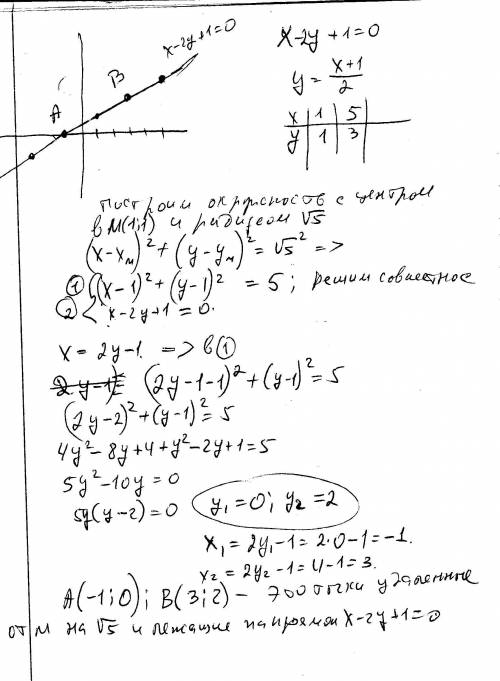 x-2y+1=0
A
B
x-2y+1=0
y = (x+1)/2
x | 1 | 5
y | 1 | 3
построим окружность с центром
в M(1;1) и радиусом √5
(x-xм)² + (y-yм)² = √5² =>
① {(x-1)² + (y-1)² = 5; решим совместное
② x-2y+1=0.
x = 2y-1. => в ①
(2y-1-1)² + (y-1)² = 5
(2y-2)² + (y-1)² = 5
4y²-8y+4+y²-2y+1=5
5y²-10y=0
5y(y-2)=0 y₁=0; y₂=2
x₁=2y₁-1=2·0-1=-1.
x₂=2y₂-1=4-1=3.
A(-1;0); B(3;2) - это точки удаленные
от M на √5 и лежащие на прямой x-2y+1=0